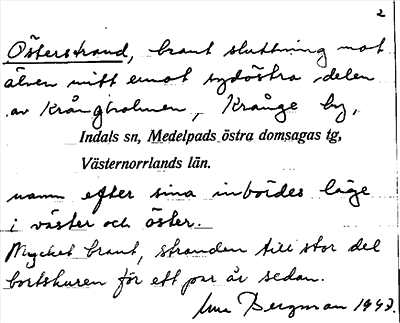 2
Österstrand, brant sluttning mot
älven mitt emot sydöstra delen
av Krångholmen, Krånge by,
Indals sn, Medelpads östra domsagas tg,
Västernorrlands län.
namn efter sina inboídes läge
i väster och öster.
Mycket brant, stranden till stor del
bortskuren för ett par år sedan.
Bergman 1943.